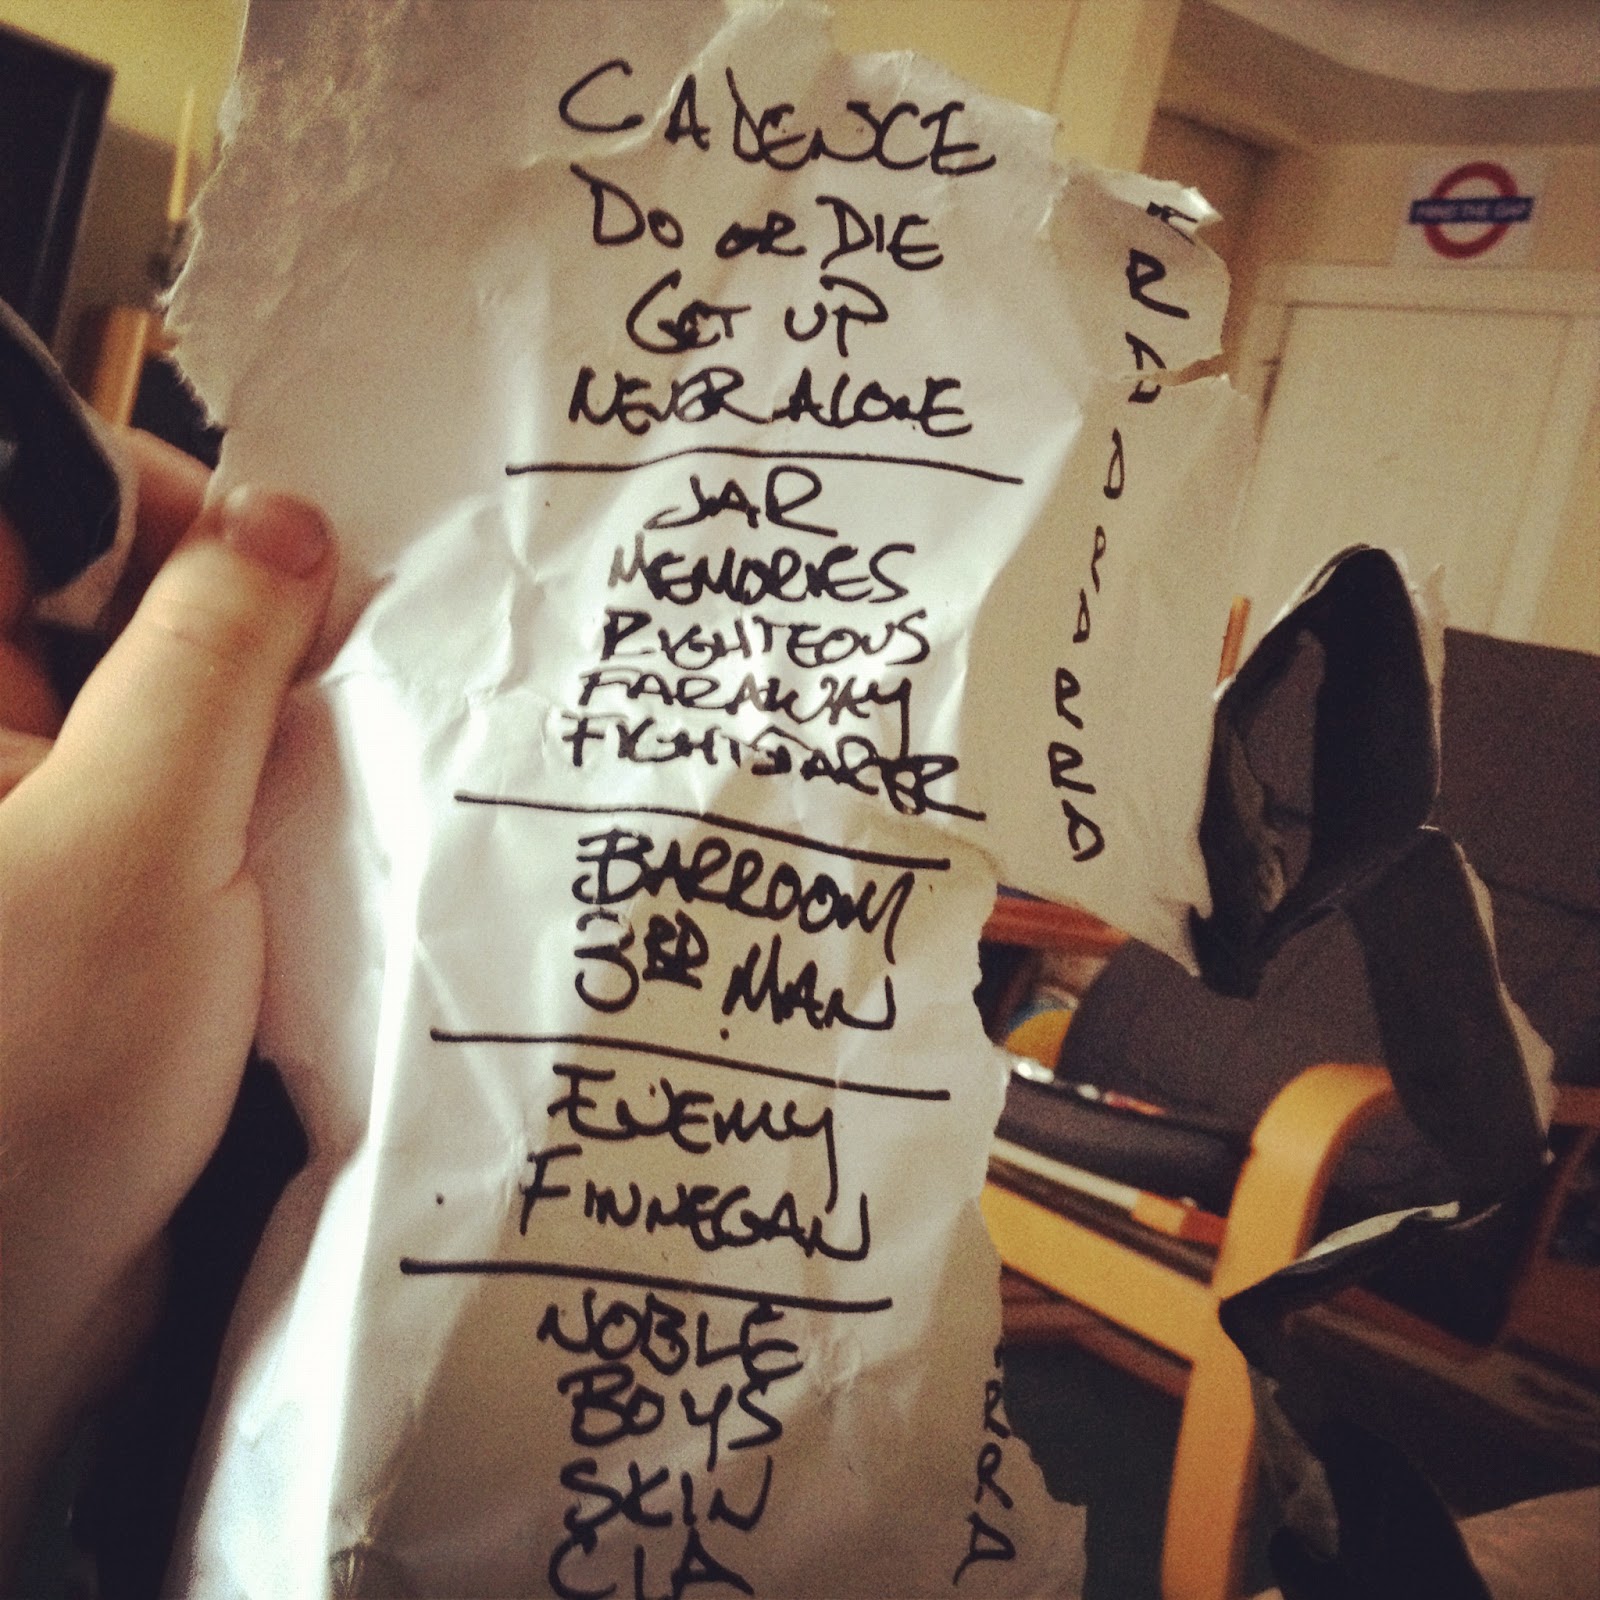 CADENCE
DO OR DIE
GET UP
NEVER ALONE
JAR
MEMORIES
RIGHTEOUS
FARAWAY
FIGHTSTARTER
BARROOM
3RD MAN
ENEMY
FINNEGAN
NOBLE
BOYS
SKIN
CIA
R
D
D
R
D
R
R
D
R
R
D
MIND THE GAP